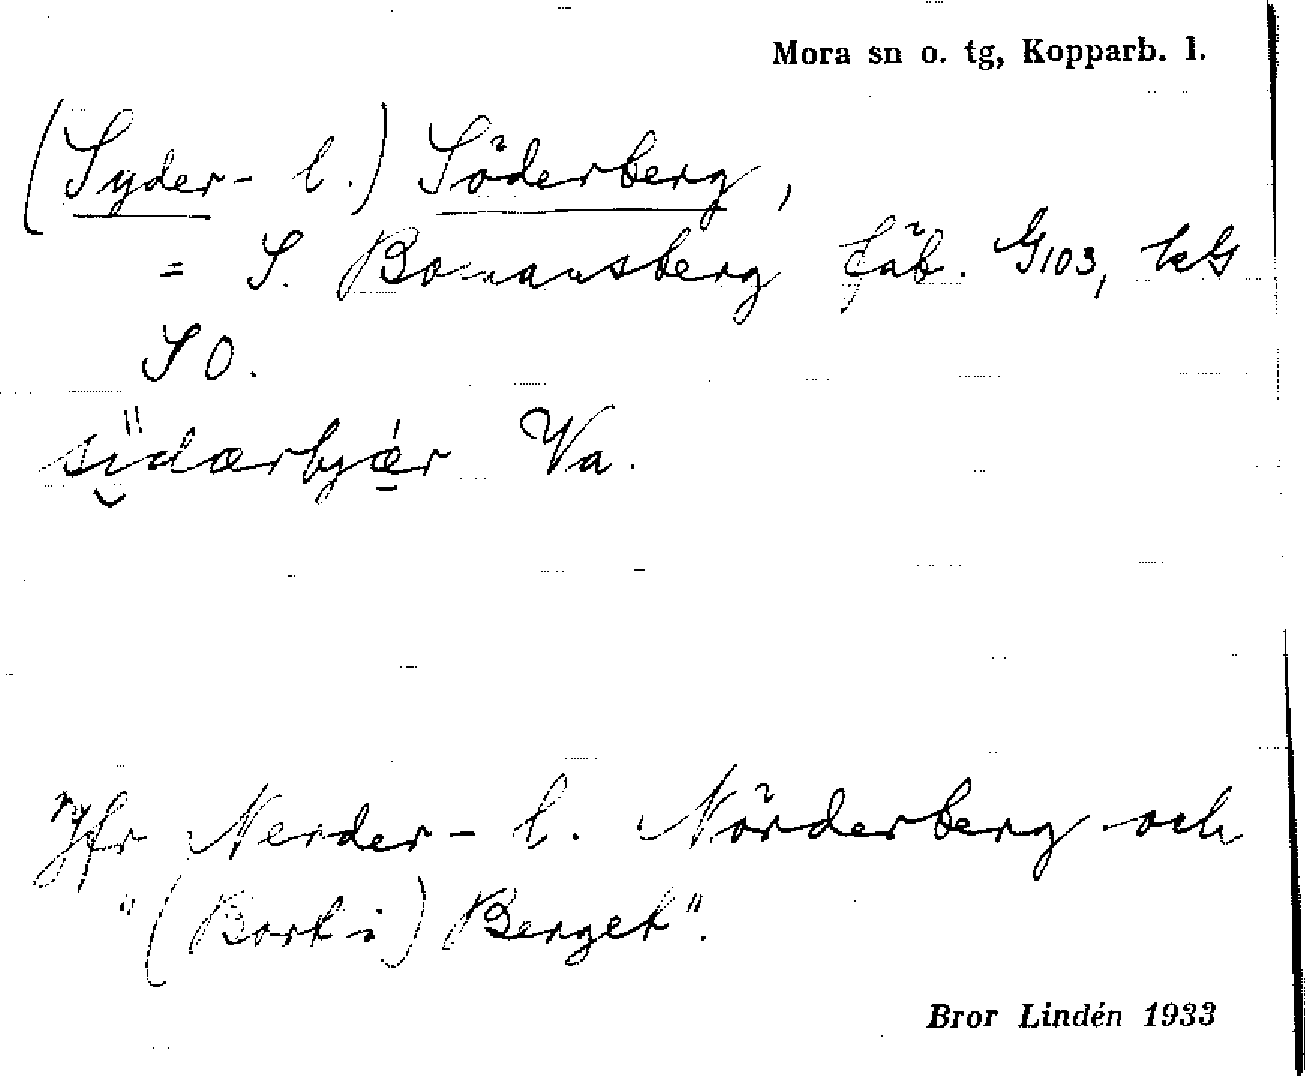 Mora sn o. tg, Kopparb. l.
(Syder- l.) Söderberg,
= S. Bomansberg fäb. G103, kG
SO.
södærbjær Va.
Jfr Nerder- l. Nörderberg och
"(Bort i) Berget".
Bror Lindén 1933